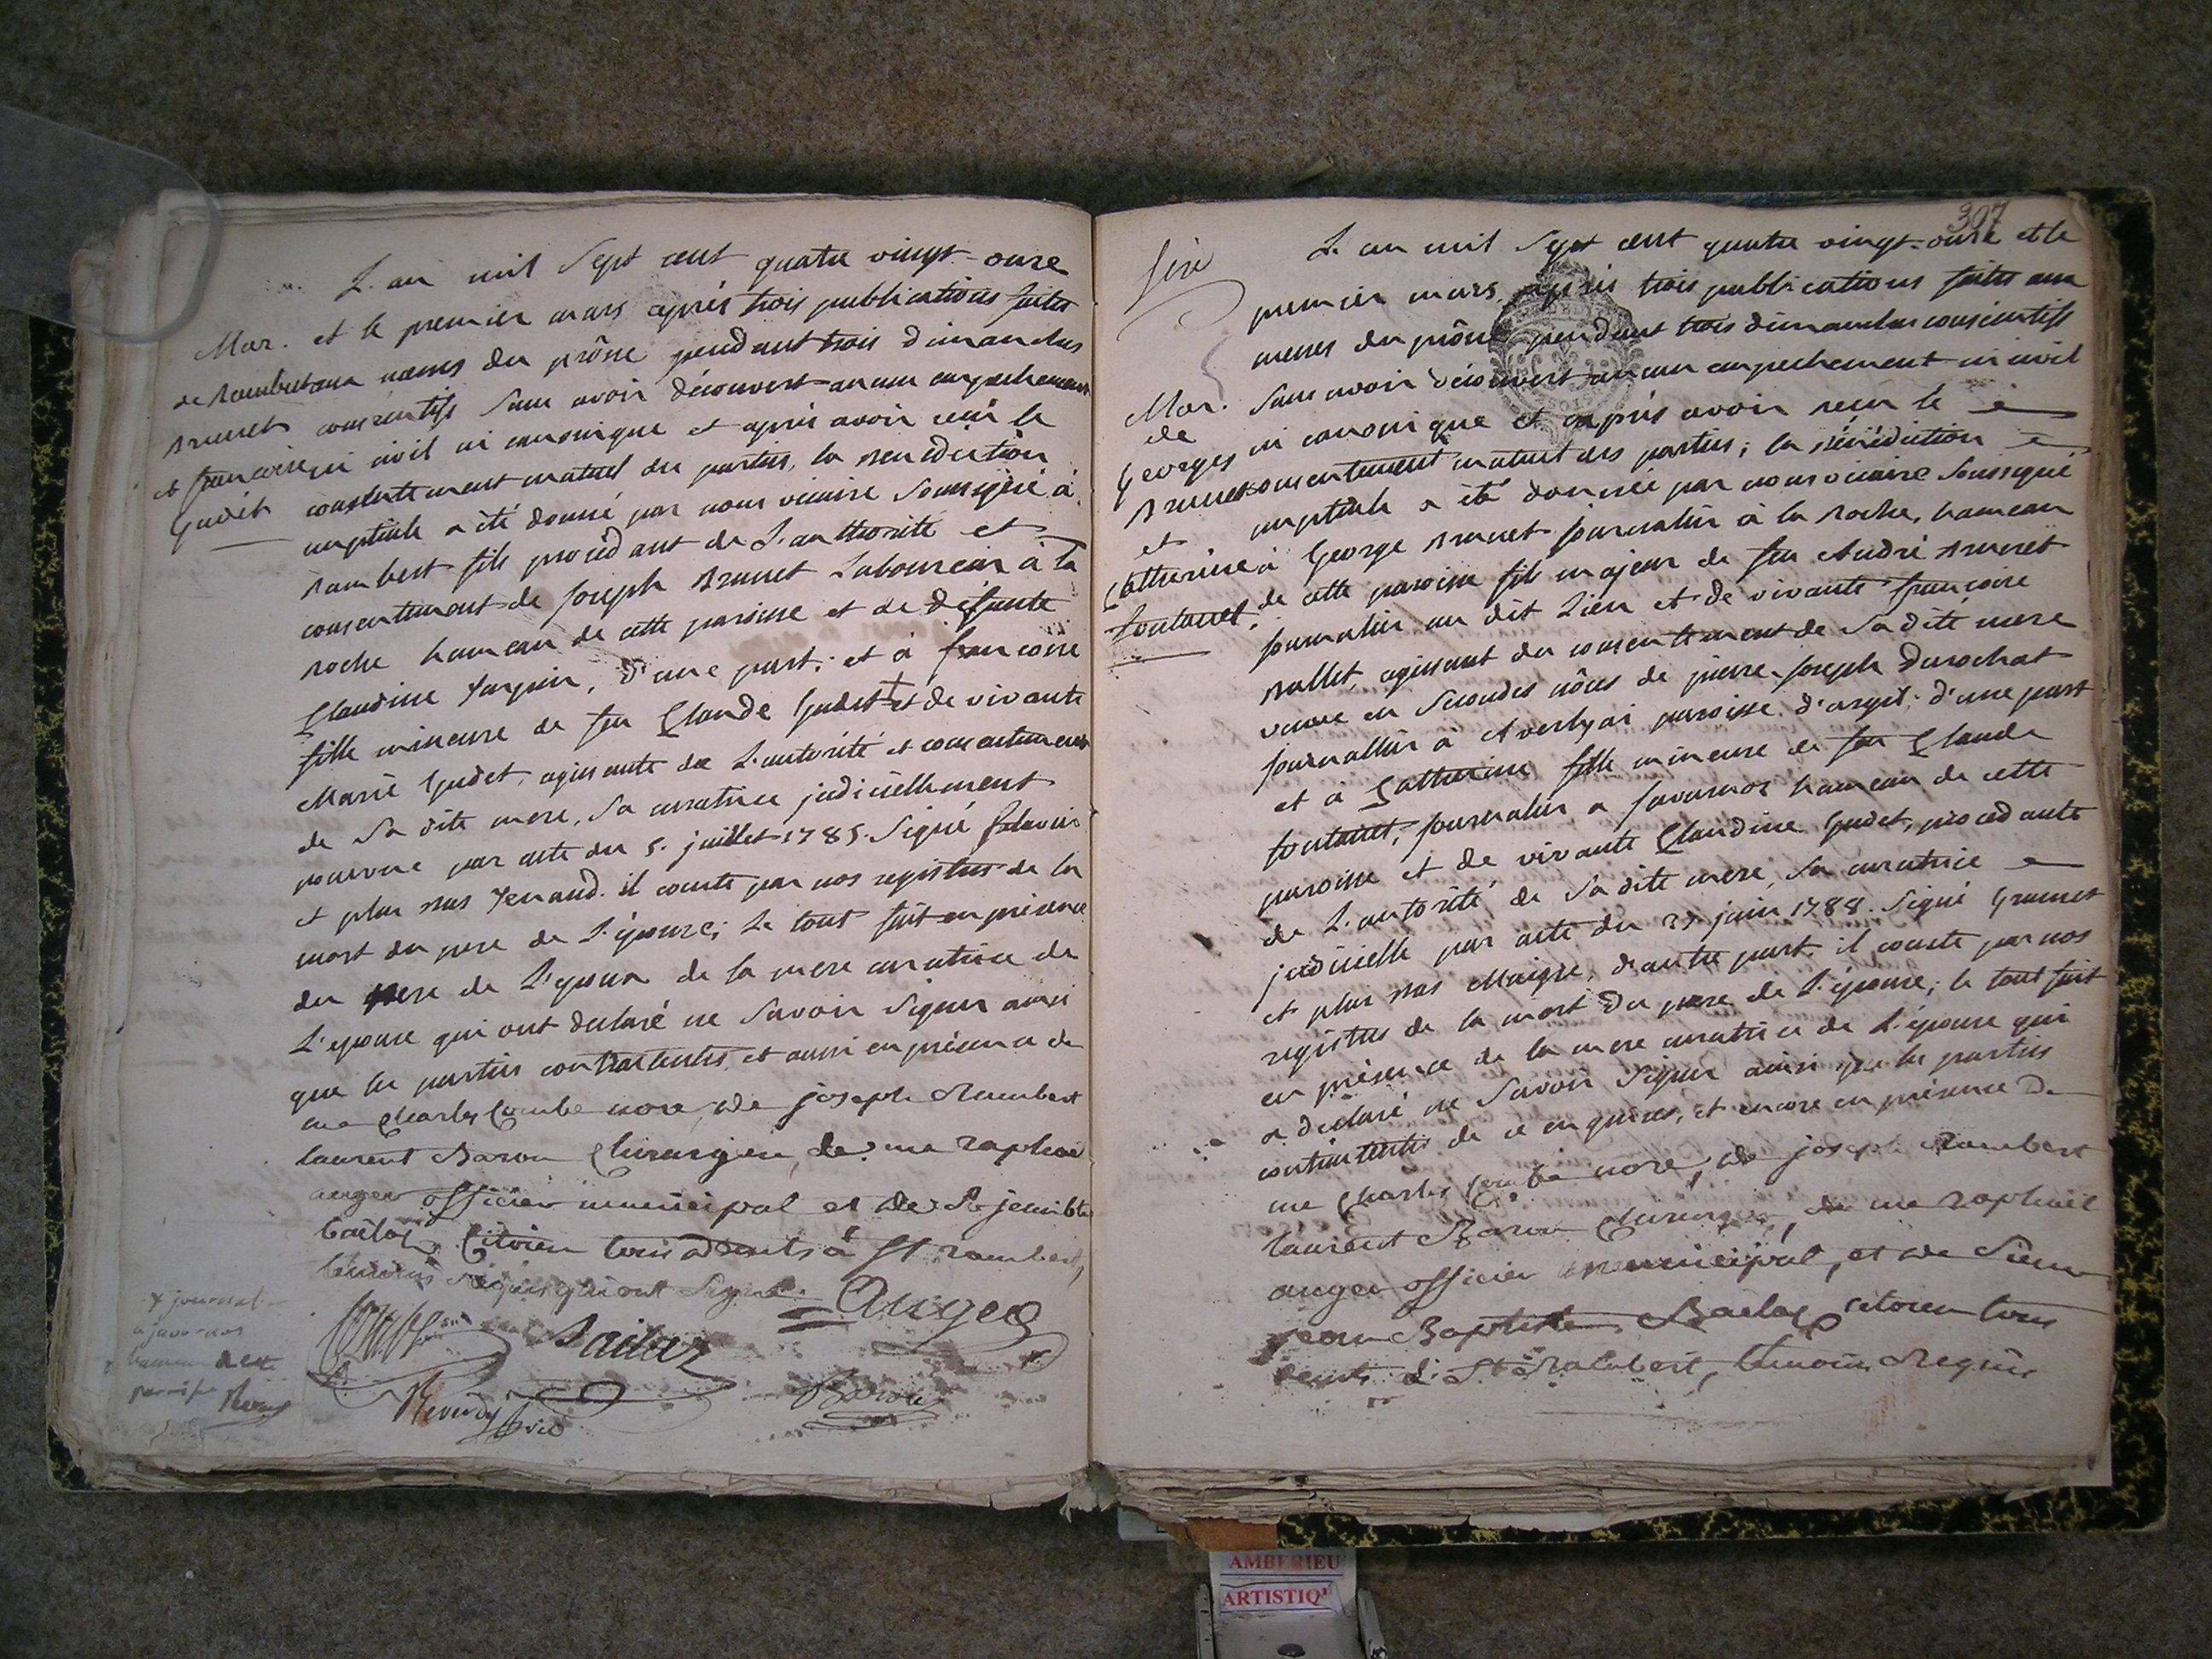 L'an mil Sept cent quatre vingt-onze
Mar. et le premier mars après trois publications faites
de Rambert aux messes du prône pendant trois dimanches
Brunet consecutifs sans avoir découvert aucun empechement
et francoise ni civil ni canonique et après avoir reçu le
Gudet consentement mutuel des parties, la benediction
nuptiale a été donné par nous vicaire soussigné à
Rambert fils procédant de L'authorité et
consentement de joseph Brunet Laboureur à la
roche hameau de cette paroisse et de défunte
Claudine, d'une part; et à francoise
fille mineure de feu Claude Gudet + et de vivante
Marie Gudet, agissante de L'autorité et consentement
de Sa dite mere, Sa curatrice judiciellement
pourvue par acte du 5. juillet 1785. Signé
et plus bas Tenand. il conste par nos registres de la
mort du pere de L'épouse; Le tout fait en présence
du pere de L'epoux de la mere curatrice de
L'epouse qui ont declaré ne Savoir Signer ainsi
que les parties contractantes, et aussi en présence de
me Charles Combe nore, de joseph Rambert
laurent Baron Chirurgien, de me raphael
auger officier municipal et de Sr jean bte
Bailat Citoien tous à St rambert,
témoins requis qui ont Signé. Auger
Combe Bailat
Reverdy vic Baron
+ journalier
à javornos
hameau de cette
paroisse Rev
307
Sixe L'an mil Sept cent quatre vingt-onze et le
premier mars, après trois publications faites aux
messes du prône pendant trois dimanches consecutifs
Mar. Sans avoir découvert aucun empechement ni civil
de ni canonique et après avoir reçu le
Georges consentement mutuel des parties; la bénédiction
Brunet nuptiale a été donnée par nous vicaire soussigné
et à George Brunet journalier à la Roche, hameau
Catherine de cette paroisse fils majeur de feu André Brunet
fontanet. journalier au dit Lieu et de vivante francoise
Ballet, agissant du consentement de Sa dite mere
veuve en Secondes nôces de pierre joseph Durochat
journallier à Averliaz paroisse d'argil. d'une part
et à Catherine fille mineure de feu Claude
fontanet, journalier a javornos hameau de cette
paroisse et de vivante Claudine Gudet, procedante
de L'autorité de Sa dite mere, Sa curatrice
judicielle par acte du 27. juin 1788. Signé Grumet
et plus bas Maigre, d'autre part. il conste par nos
registres de la mort du pere de L'épouse; le tout fait
en présence de la mere curatrice de L'épouse qui
a declaré ne Savoir Signer ainsi que les parties
contractantes de ce enquises, et encore en présence de
me Charles Combe nore, de joseph Rambert
laurent Baron Chirurgien, de me raphaël
auger officier municipal, et de Sieur
jean Baptiste Bailat citoien tous
à St Rambert, témoins Requis
AMBERIEU
ARTISTIQ'